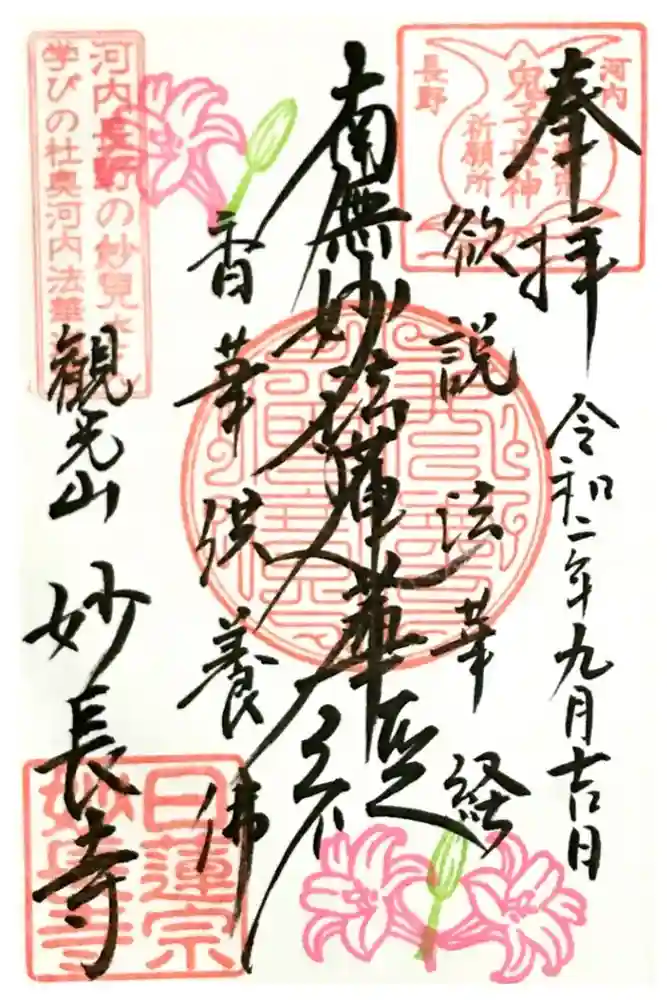 奉拝
令和二年九月吉日
河内
鬼子母神
祈願所
長野
欲説法華経
南無妙法蓮華経
香華供養佛
河内長野の妙見さん
学びの杜奥河内法華
観光山
妙長寺
日蓮宗
妙長寺